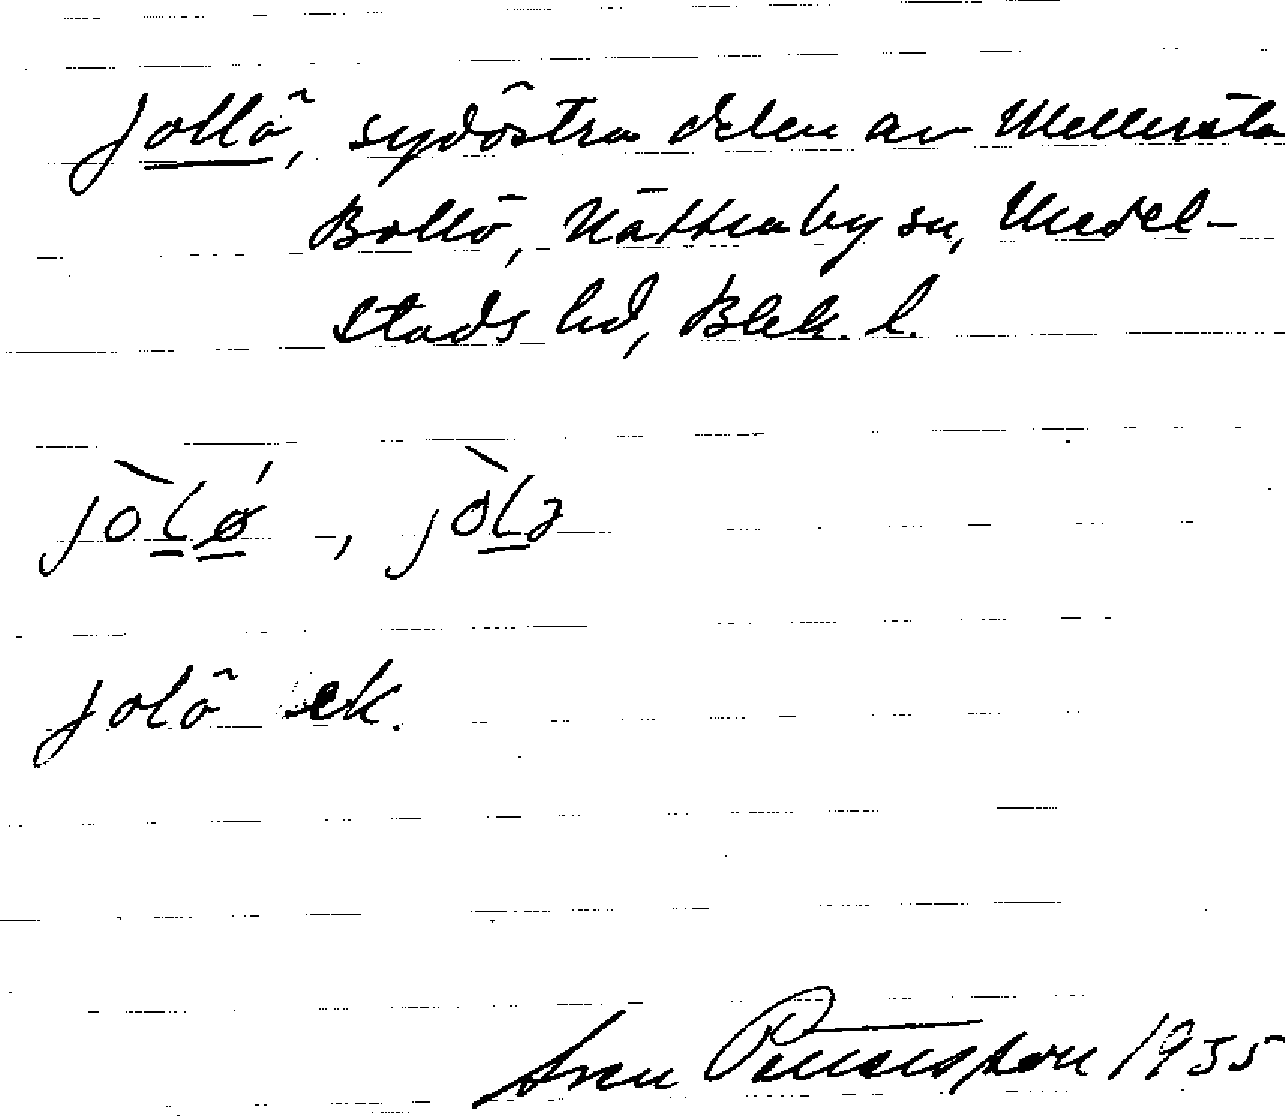 Jollö, sydöstra delen av Mellersta
Bollö, Nättraby sn, Medel-
stads hd, Blek. l.
jòlǿ, jòlə
jolö ek.
Sven Benson 1955